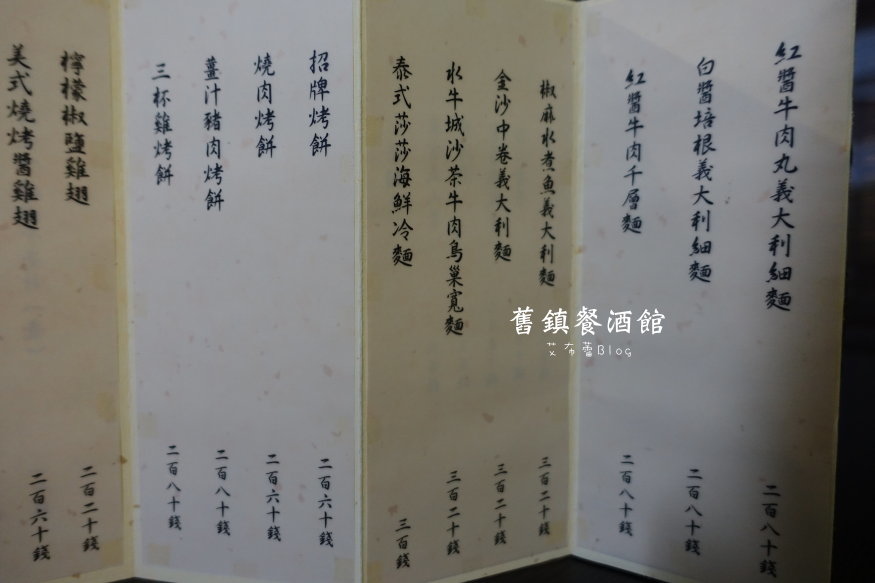 紅醬牛肉丸義大利細麵
二百八十錢
白醬培根義大利細麵
二百八十錢
紅醬牛肉千層麵
二百八十錢
椒麻水煮魚義大利麵
三百二十錢
金沙中卷義大利麵
三百二十錢
水牛城沙茶牛肉鳥巢寬麵
三百二十錢
泰式莎莎海鮮冷麵
三百錢
招牌烤餅
二百六十錢
燒肉烤餅
二百六十錢
薑汁豬肉烤餅
二百八十錢
三杯雞烤餅
二百八十錢
檸檬椒鹽雞翅
二百二十錢
美式燒烤醬雞翅
二百六十錢
舊鎮餐酒館
艾布蕾Blog